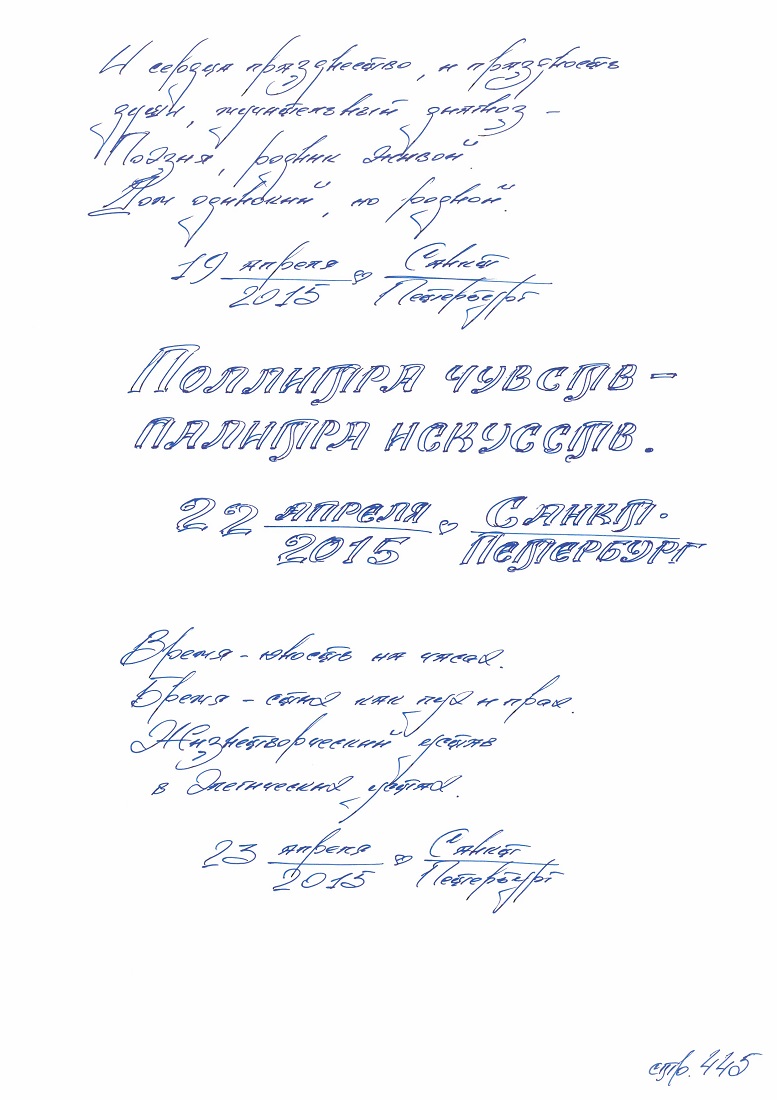 И сердца празднество, и праздность
души, мучительный диагноз –
Поэзия, родник живой.
Дом одинокий, но родной.
19 апреля 2015 Санкт Петербург
Поллитра чувств –
палитра искусств.
22 апреля 2015 Санкт- Петербург
Время – юность на часах.
Бремя – стих как пух и прах.
Жизнетворческий устав
в элегических устах.
23 апреля 2015 Санкт Петербург
стр. 445